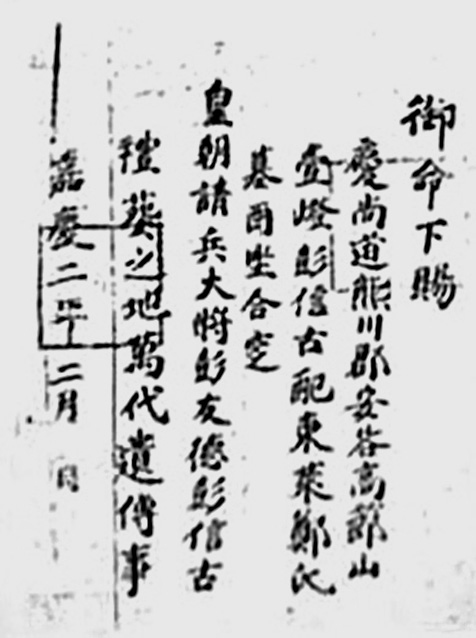 御命下賜
慶尚道熊川郡安谷高郡山
壹嶝彭信古配東萊鄭氏
墓酉坐合窆
皇朝請兵大將彭友德彭信古
禮葬之地萬代遺傳事
嘉慶二年二月 日